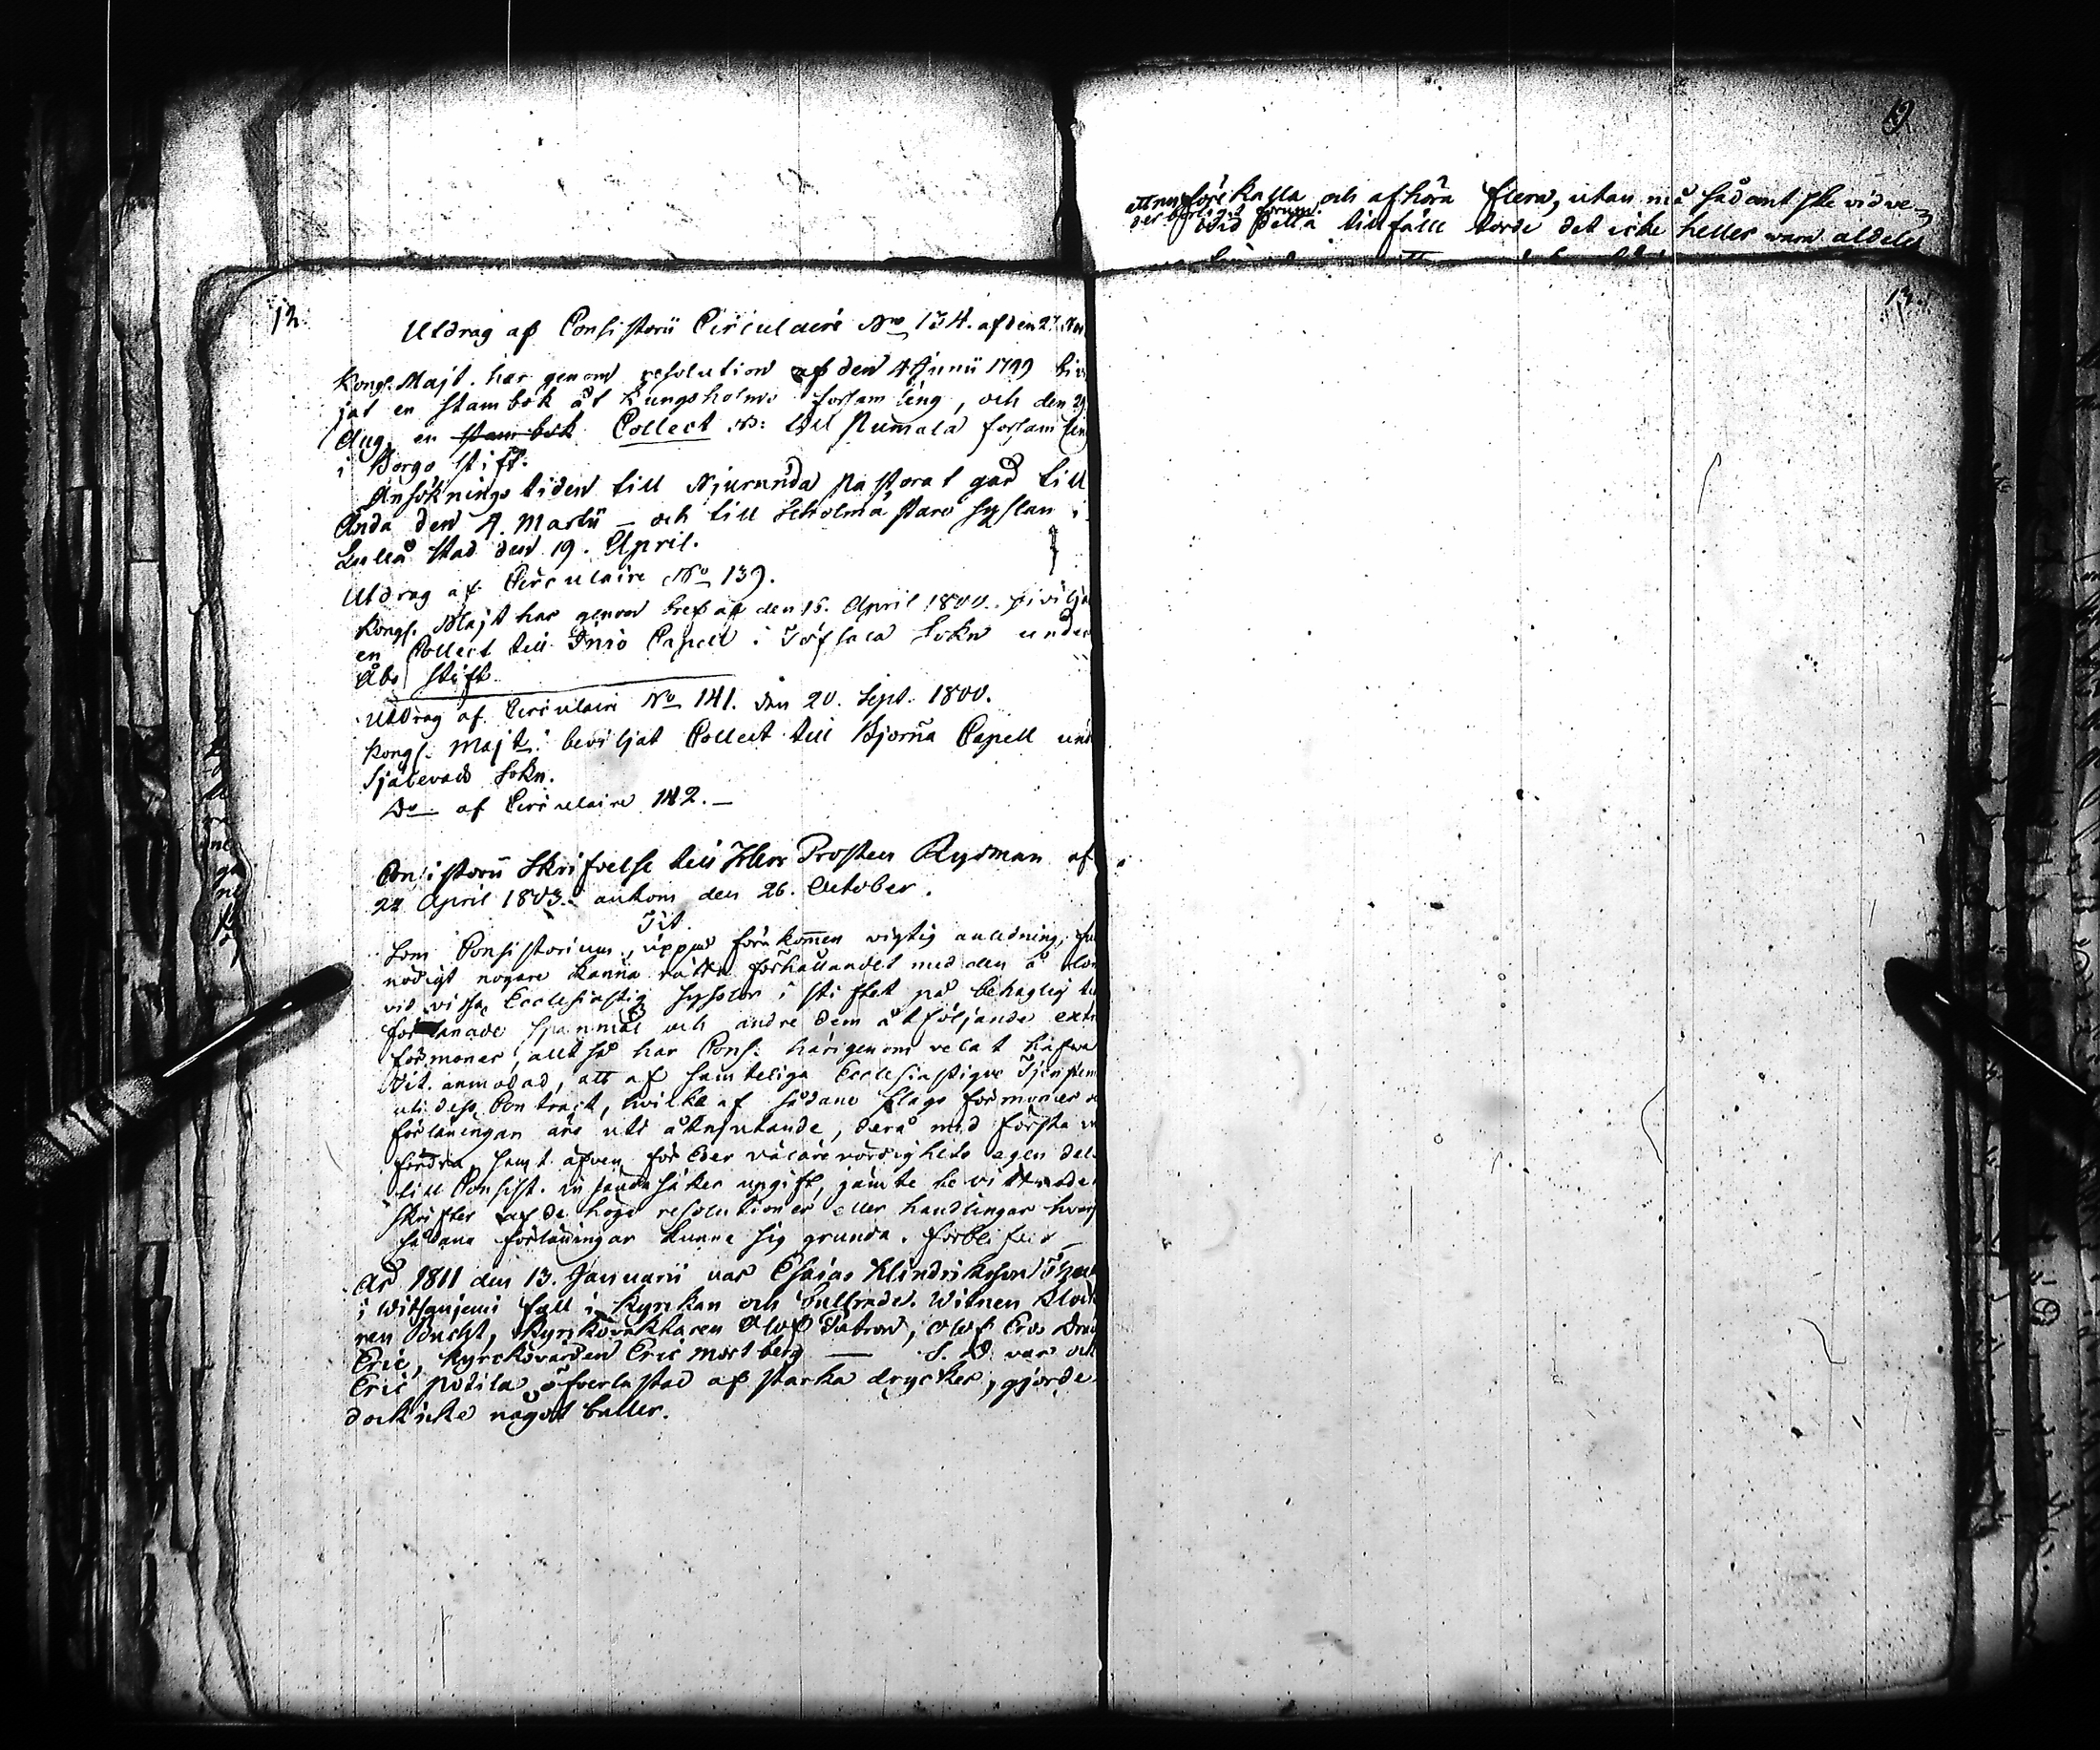 12.
Utdrag af Consistorii Circulaire No 134. af den 27
Kongl. Majt. har genom resolution af den 4 Junii 1799 bivi
jat en stambok åt Kungsholms församling, och den 29
Aug. en stambok Collect till Pumala församlin
i Borgo stift.
Ansöknings tiden till Njurunda pastorat går till
ända den 4. Martii – och till Scholmästare syslan i
Luleå stad den 19. April.
Utdrag af Circulaire No 139.
Kongl. Majt har genom bref af den 15. April 1800.
en Collect till Iniö Capell i Töfsala Sokn under
Åbo stift
Utdrag af Circulaire No 141. den 20. Sept. 1800.
Kongl. Majt. beviljat Collect till Bjorna Capell und
Själevads Sokn.
Do af Circulaire 142. –
Consistorii Skrifvelse till Herr Prosten Rydman af
22 April 1803. ankom den 26. October.
Tit.
Som Consistorium, uppå förekommen vigtig anledning,
nödigt nogare känna rätta förhållandet med den å
vid vissa Ecclesiastig syslor i stiftet på behaglig
förlänade spanmål och andre dem åtföljande extr
förmoner, allt så har Cons: härigenom velat hafwa
Tit. anmodad, att af samteliga Ecclesiastique Tjenstem
uti dess Contract, hvilka af sådane slags förmoner
förläningar äro uti åtnjutande, derå med första
fordra, samt äfven för Eder välärevördighets egen del
till Consist. insända säker upgift, jämte bevittnade
skrifter af de höge resolutioner eller handlingar hvarp
sådana förläningar kunna sig grunda. Förblifver
År 1811 den 13. Januarii var Esaias Hindriksson
i Witsanjemi full i Kyrkan och bullrade. Witnen Klock
ren Bucht, Kyrkovaktaren Olof, Olof Ers
Eric, Kyrckovärden Eric Mört berg — s. d. var och
Eric Potila öfverlastad af starka drycker, gjorde
dock icke något buller.
19
förekalla och afhöra flera, utan må sådant ske vid ve-
derbörligt forum.
vid detta tillfälle torde det icke heller vara aldeles
13.